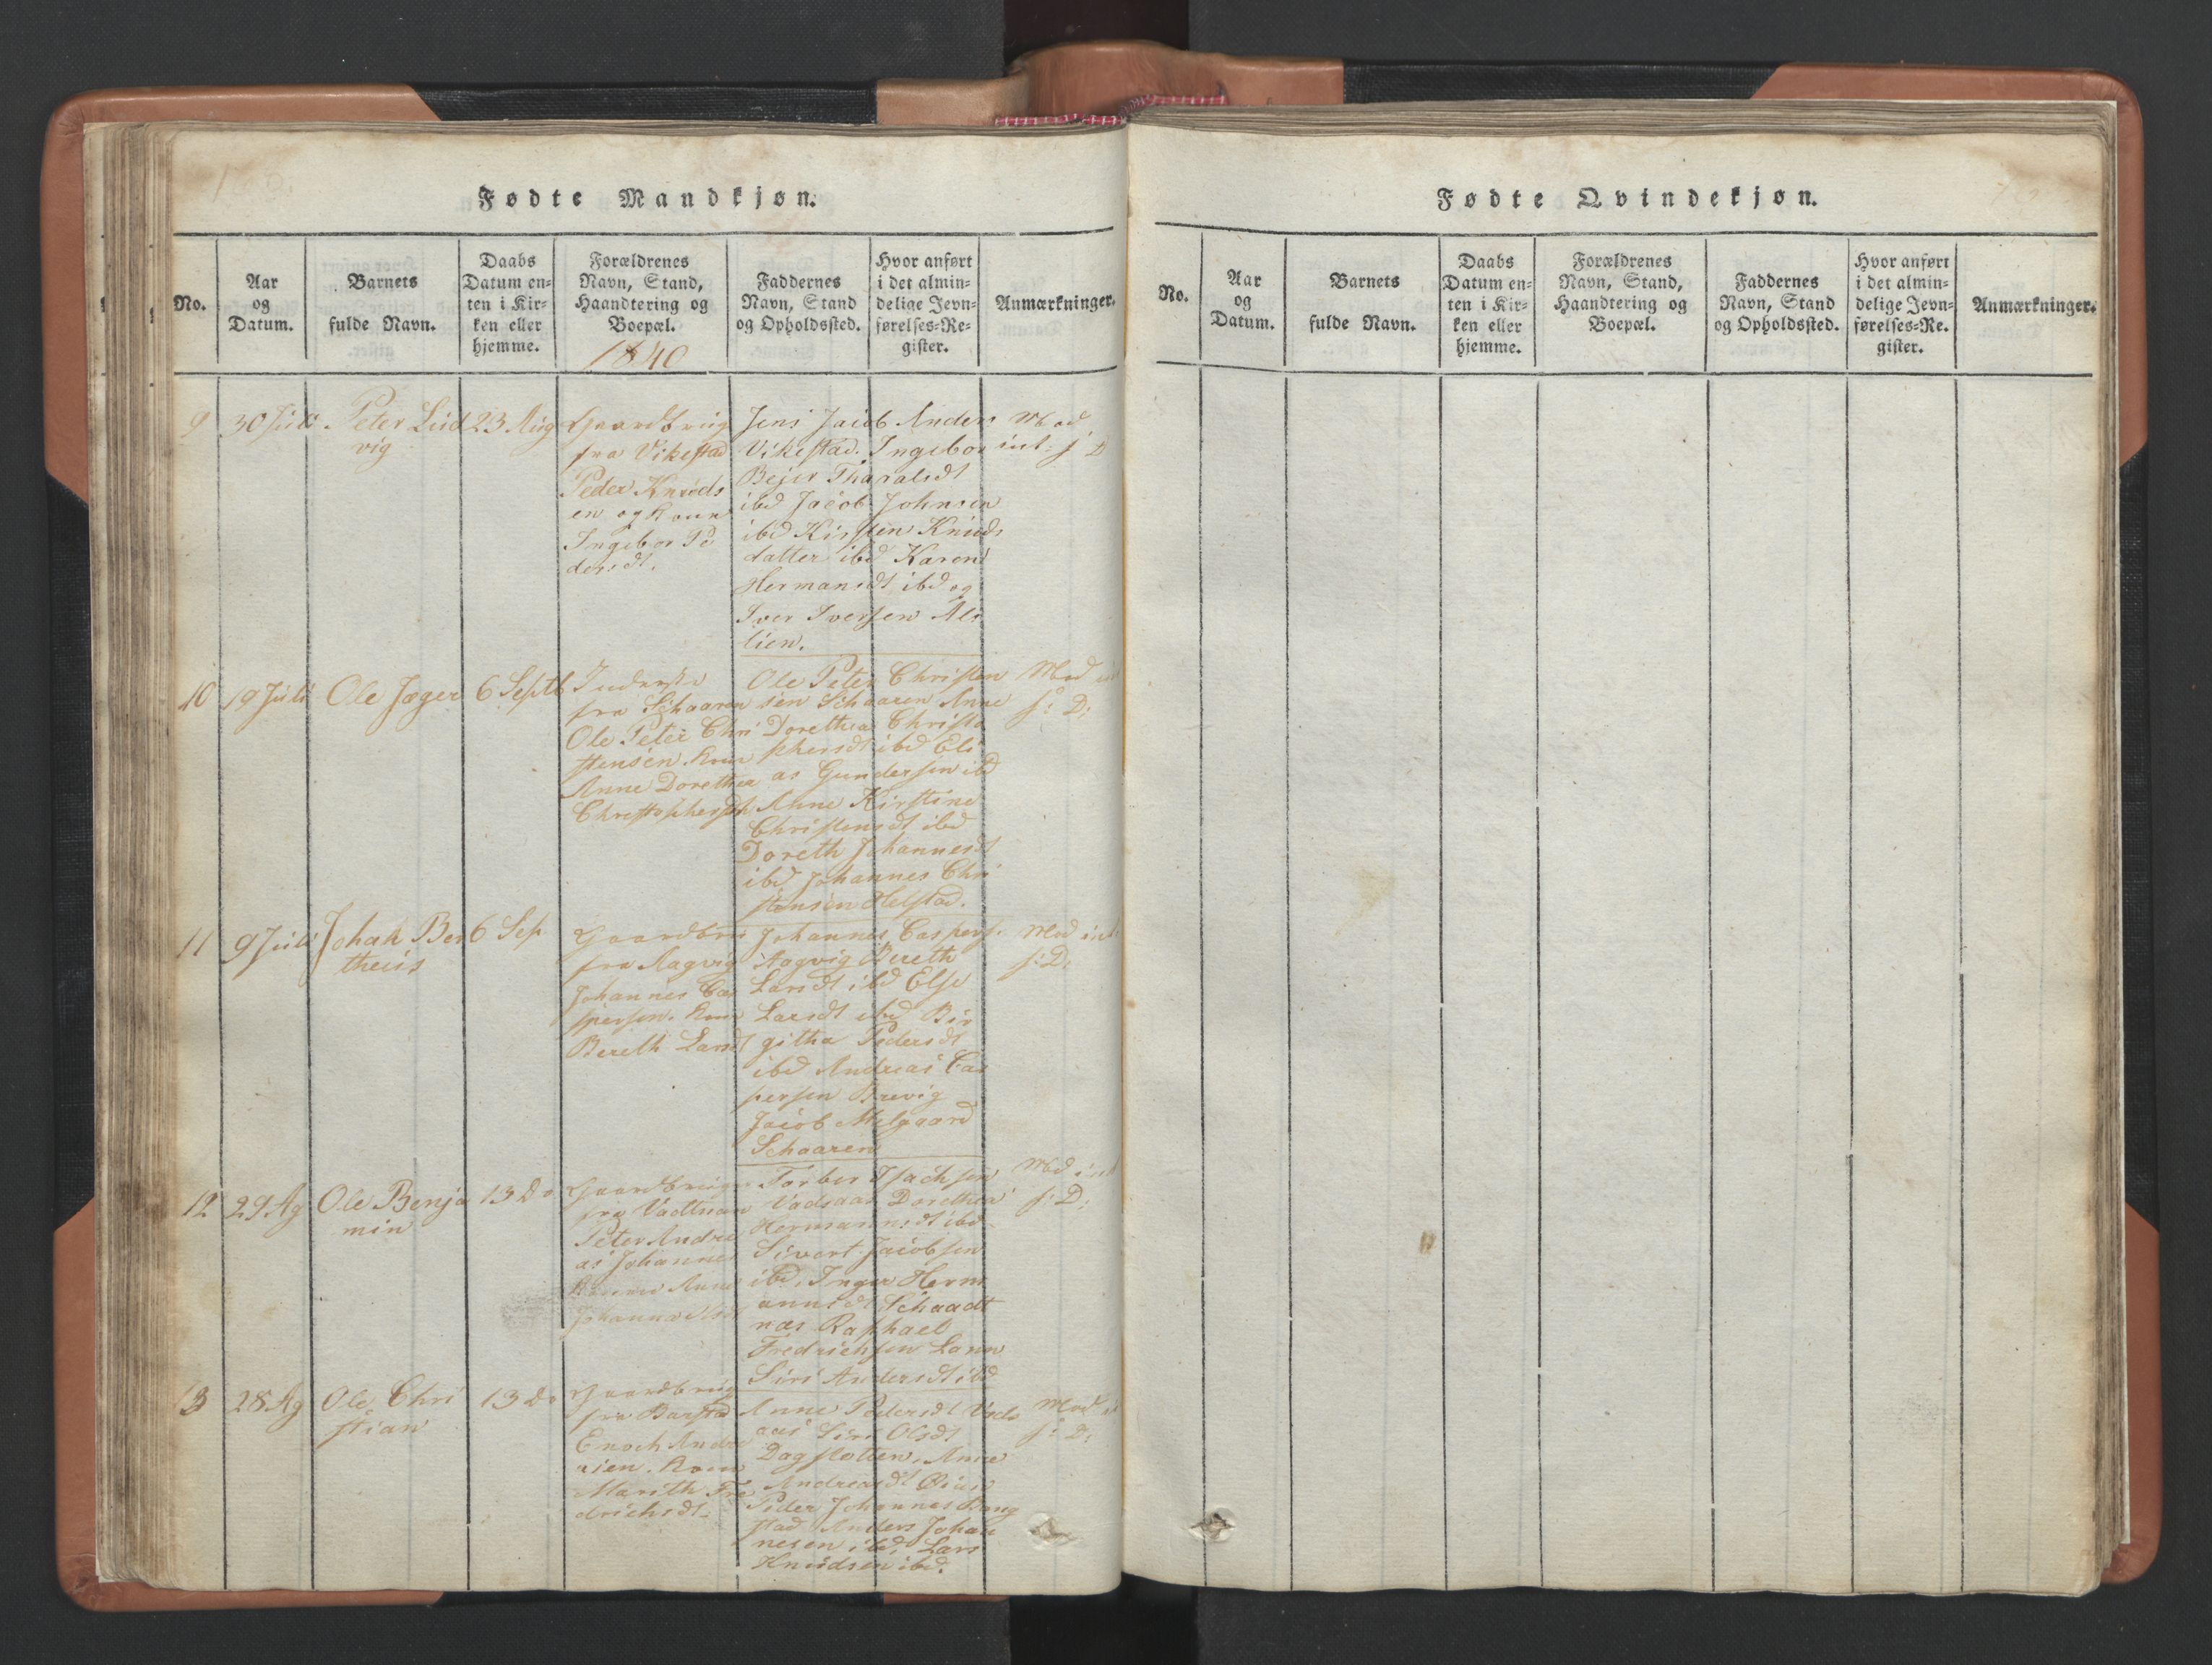 Fødte Mandkjøn.
No.
Aar
og
Datum.
Barnets
fulde Navn.
Daabs
Datum en-
ten i Kir-
ken eller
hjemme.
Forældrenes
Navn, Stand,
Haandtering og
Boepæl.
1840
Faddernes
Navn, Stand
og Opholdssted.
Hvor anført
i det almin-
delige Jevn-
førelses-Re-
gister.
Anmærkninger.
9
30 Juli
Peter Lud
vig
23 Aug
Gaardbrug
fra Vikestad
Peder Knuds
en og Kone
Ingebor Pe
dersdt.
Jens Jacob Anders
Vikestad. Ingebor
Bejer Tharalsdt
ibd Jacob Johnsen
ibd Kirsten Knuds
datter ibd Karen
Hermansdt ibd og
Iver Iversen Als
lien.
Mod
int. f D
10
19 Juli
Ole Jæger
6 Septb
Inderste
fra Schaaren
Ole Peter Chri
stensen. Kone
Anne Dorethea
Christophersdt
Ole Peter Christen
sen Schaaren Anne
Dorethea Christo
phersdt ibd Eli
as Gundersen ibd
Anne Kirstine
Christensdt ibd
Doreth Johannesdt
ibd Johannes Chri
stensen Helstad.
Mod
f: D:
11
9 Juli
Johak Ber
theus
6 Sep
Gaardbru
fra Aagvig
Johannes Cas
persen. Kone
Bereth Larsdt
Johannes Caspers.
Aagvig Bereth
Larsdt ibd Else
Larsdt ibd Bir
githa Pedersdt
ibd Andreas Cas
persen Brevig
Jacob Melgaard
Schaaren
Mod int
f: D:
12
29 Ag
Ole Benja
min
13 Do
Gaardbrug
fra
Peter Andre
as Johannes
Konen Anne
Johanna
Torber Isachsen
Vadsaas Dorethea
Hermannsdt ibd
Sivert Jacobsen
ibd. Inger Herm
annsdt Schaadt
næs Raphael
Fredrichsen
Siri Andersdt ibd
Mod int
f: D:
13
28 Ag
Ole Chri
stian
13 Do
Gaardbrug
fra Barstad
Enoch Andre
Kone
Mareth Fre
drichsdt.
Anne Pedersdt Vads
aas Siri Olsdt
Dagslotten, Anne
Andreasdt
Peder Johannes Bang
stad Anders Johan
nesen ibd, Lars
Knudsen ibd.
Mod
f: D:
Fødte Qvindekjøn.
No.
Aar
og
Datum.
Barnets
fulde Navn.
Daabs
Datum en-
ten i Kir-
ken eller
hjemme.
Forældrenes
Navn, Stand,
Haandtering og
Boepæl.
Faddernes
Navn, Stand
og Opholdssted.
Hvor anført
i det almin-
delige Jevn-
førelses-Re.
gister.
Anmærkninger.